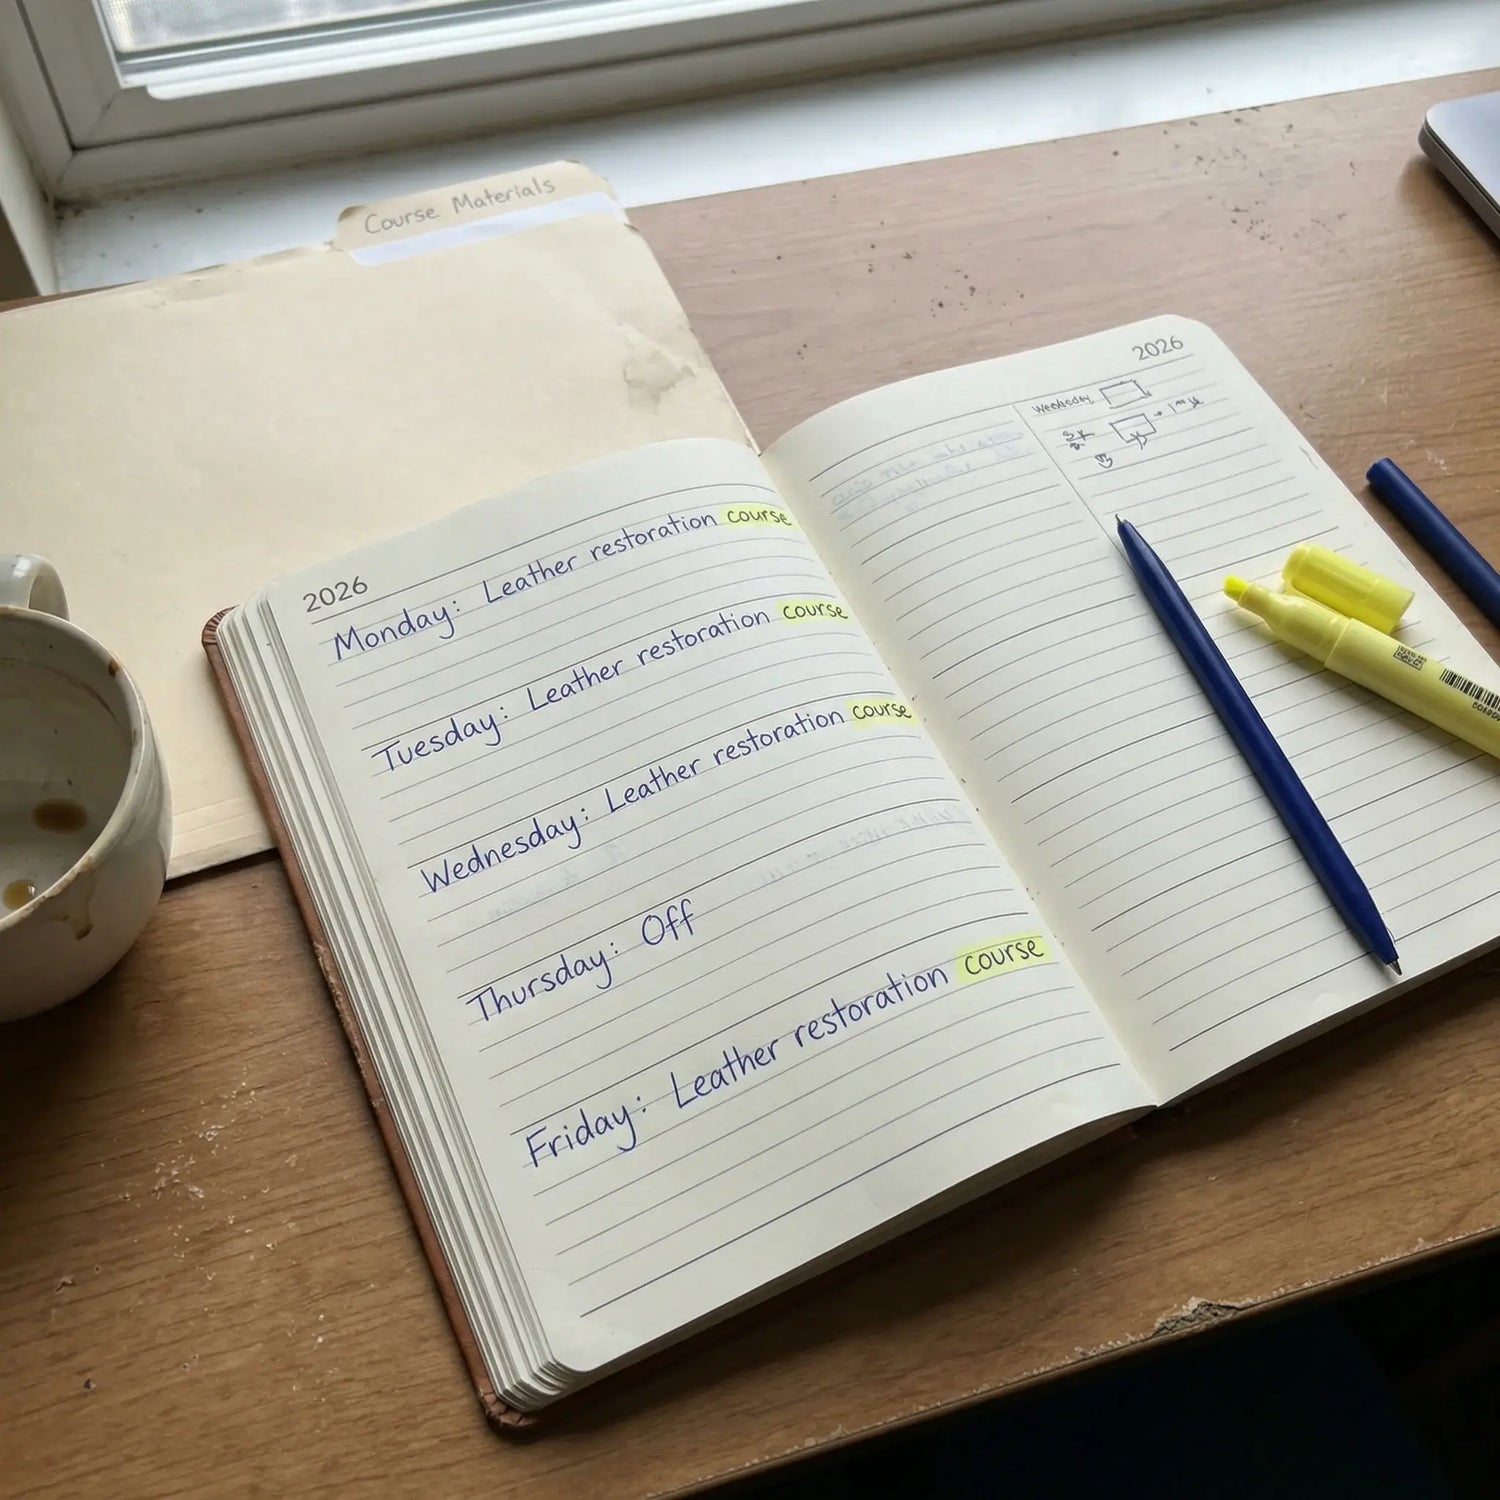 Course Materials
2026
Monday: Leather restoration course
Tuesday: Leather restoration course
Wednesday: Leather restoration course
Thursday: Off
Friday: Leather restoration course
2026
Wednesday